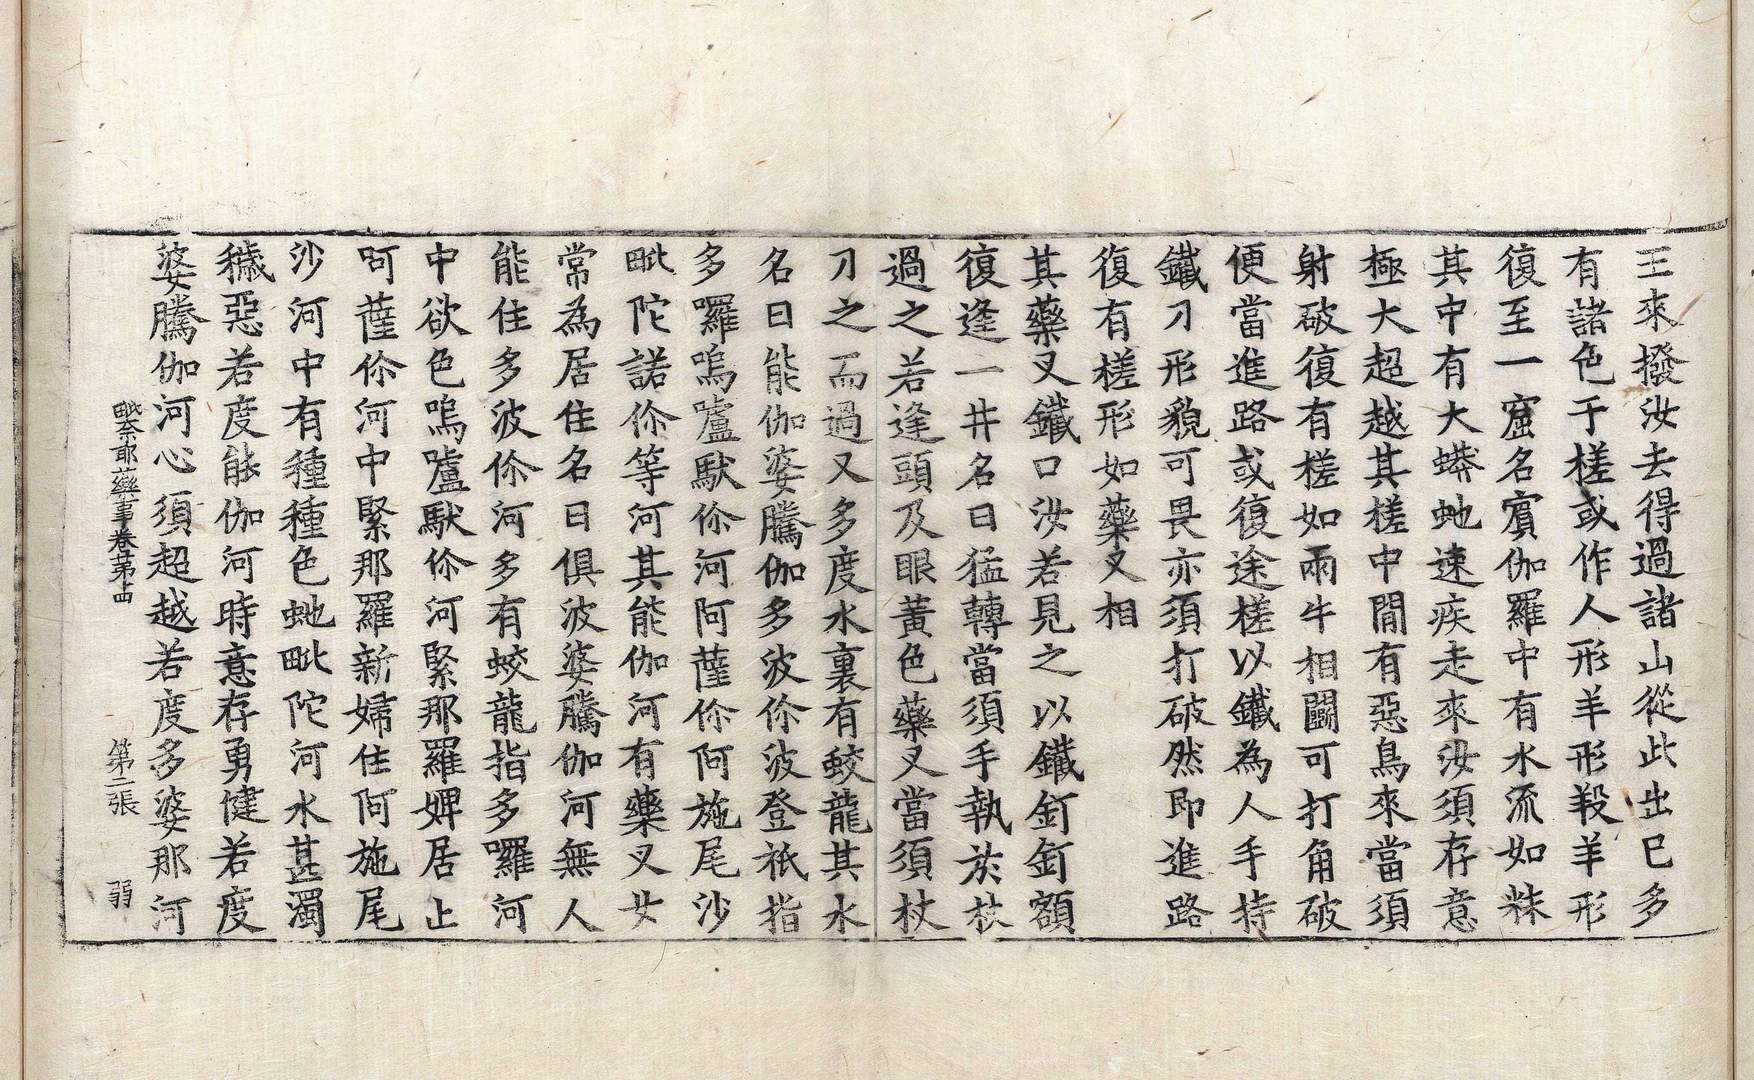 王來撥汝去得過諸山從此出已多
有諸色于槎或作人形羊形羖羊形
復至一窟名賓伽羅中有水流如粖
其中有大蟒虵速疾走來汝須存意
極大超越其槎中閒有惡鳥來當須
射破復有槎如兩牛相鬪可打角破
便當進路或復途槎以鐵為人手持
鐵刀形貌可畏亦須打破然即進路
復有槎形如藥叉相
其藥叉鐵口汝若見之以鐵釘釘額
復逢一井名曰猛轉當須手執於杖
過之若逢頭及眼黃色藥叉當須杖
刀之而過又多度水裏有蛟龍其水
名曰能伽婆騰伽多波伱波登祇指
多囉嗚嚧馱伱河阿薩伱阿施尾沙
毗陀諾伱等河其能伽河有藥叉女
常為居住名曰俱波婆騰伽河無人
能住多波伱河多有蛟龍指多囉河
中欲色嗚嚧馱伱河緊那羅婢居止
呵薩伱河中緊那羅新婦住阿施尾
沙河中有種種色虵毗陀河水甚濁
穢惡若度能伽河時意存勇健若度
婆騰伽河心須超越若度多婆那河
毗奈耶藥事卷苐十四 第二張 弱